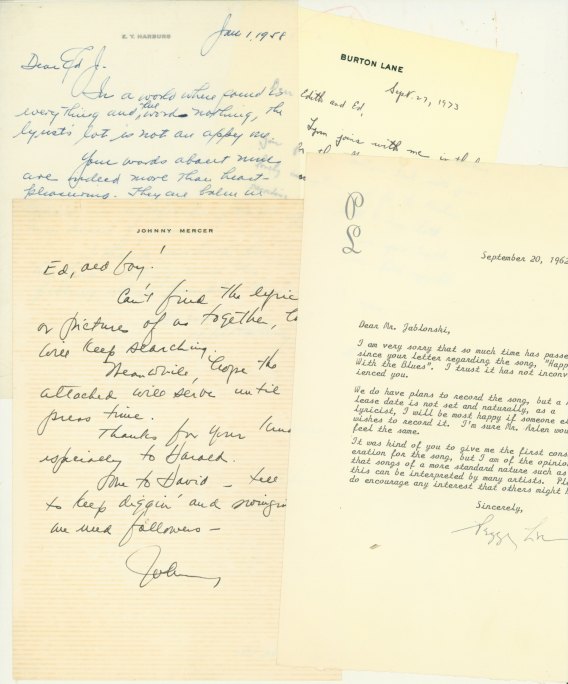 E. Y. HARBURG
Jan 1, 1958
Dear Ed J.
In a world where sound is
everything and the words nothing, the
lyrist's lot is not an appy one
Your words about mine
are indeed more than heart-
pleasuring. They are balm in
BURTON LANE
Sept 27, 1973
Edith and Ed,
Lynn joins with me in
JOHNNY MERCER
Ed, old boy!
Can't find the lyric
or pictures of us together,
will keep searching.
Meanwhile, hope the
attached will serve until
press time.
Thanks for your
especially to Harold.
to David – tell
to keep diggin' and swingin
we need followers –
Johnny
P
L
September 20, 1962
Dear Mr. Jablonski,
I am very sorry that so much time has passe
since your letter regarding the song, "Happ
With the Blues". I trust it has not inconv
ienced you.
We do have plans to record the song, but a
lease date is not set and naturally, as a
Lyricist, I will be most happy if someone e
wishes to record it. I'm sure Mr. Arlen wou
feel the same.
It was kind of you to give me the first cons
eration for the song, but I am of the opinio
that songs of a more standard nature such as
this can be interpreted by many artists. Pl
do encourage any interest that others might
Sincerely,
Peggy Lee